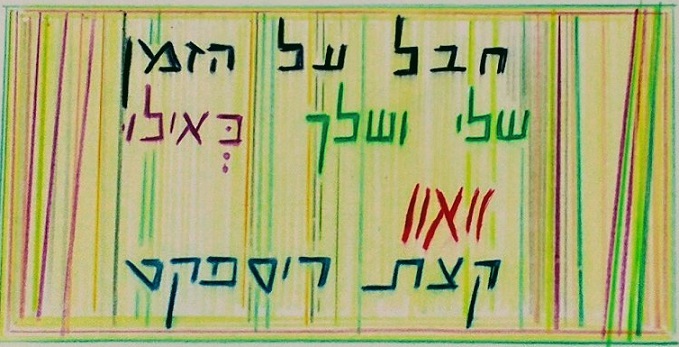 חבל על הזמן
שלי ושלך כְּאילו
וואוו
קצת ריספקט